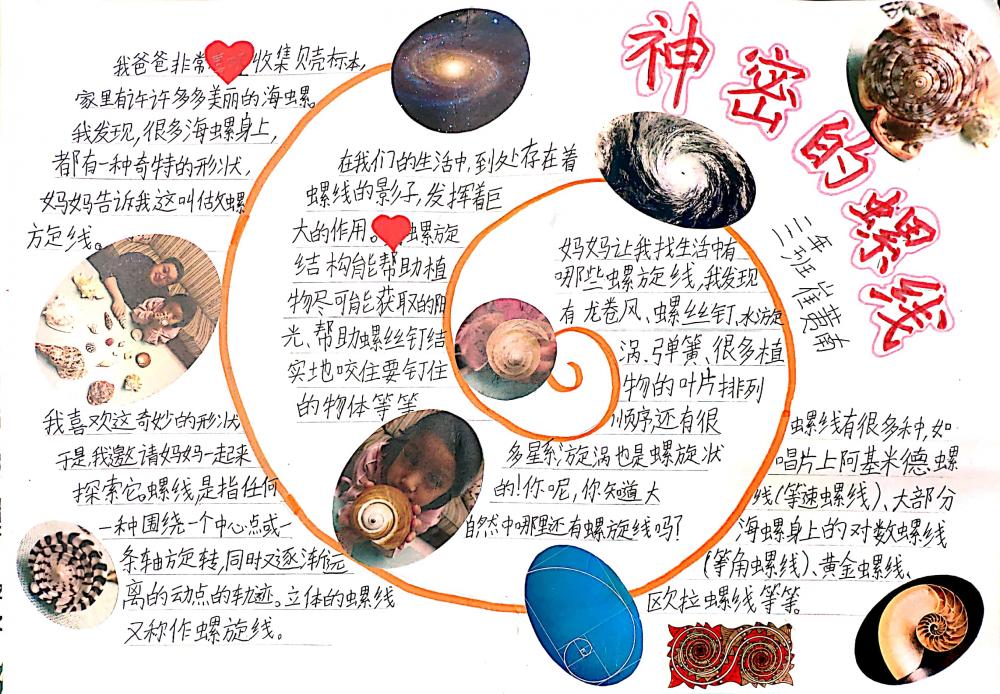 神密的螺线
三年
班 崔黄南
我爸爸非常 收集贝壳标本,
家里有许许多多美丽的海螺。
我发现,很多海螺身上,
都有一种奇特的形状,
妈妈告诉我这叫做螺
方定线。
我喜欢这奇妙的形状
于是我邀请妈妈一起来
探索它。螺线是指任何
一种围绕一个中心点或一
条轴方旋转,同时又逐渐远
离的动点的轨迹。立体的螺线
又称作螺旋线。
在我们的生活中,到处存在着
螺线的影子,发挥着巨
大的作用。 螺旋
结构能帮助植
物尽可能获取的阳
光、帮助螺丝钉结
实地咬住要钉住
的物体等等
妈妈让我找生活中有
哪些螺旋线,我发现
有龙卷风、螺丝钉、水旋
涡、弹簧、很多植
物的叶片排列
顺序,还有很
多星系旋涡也是螺旋状
的!你呢,你知道大
自然中哪里还有螺旋线吗?
螺线有很多种,如
唱片上阿基米德螺
线(等速螺线)、大部分
海螺身上的对数螺线
(等角螺线)、黄金螺线、
欧拉螺线等等